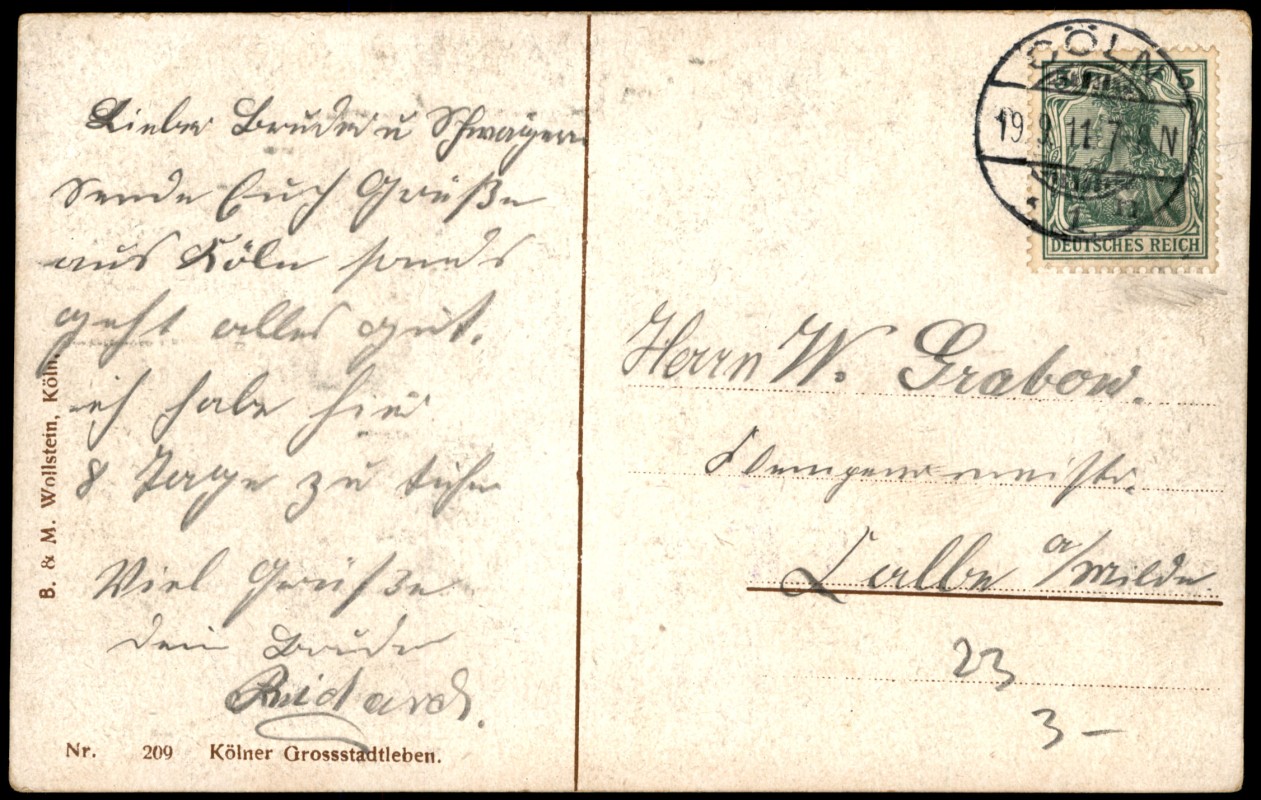 Lieber Bruder u Schwägerin
sende Euch Grüße
aus Köln sonds
geht alles gut.
ich habe hier
8 Tage zu tuhn
Viel Grüße
dein Bruder
Richard.
B. & M. Wollstein, Köln.
Nr. 209 Kölner Grossstadtleben.
CÖLN 5
19.9.11. 7-8 N
DEUTSCHES REICH
Herrn W. Grabow.
Klempnermeister.
Calbe a/Milde
23
3-